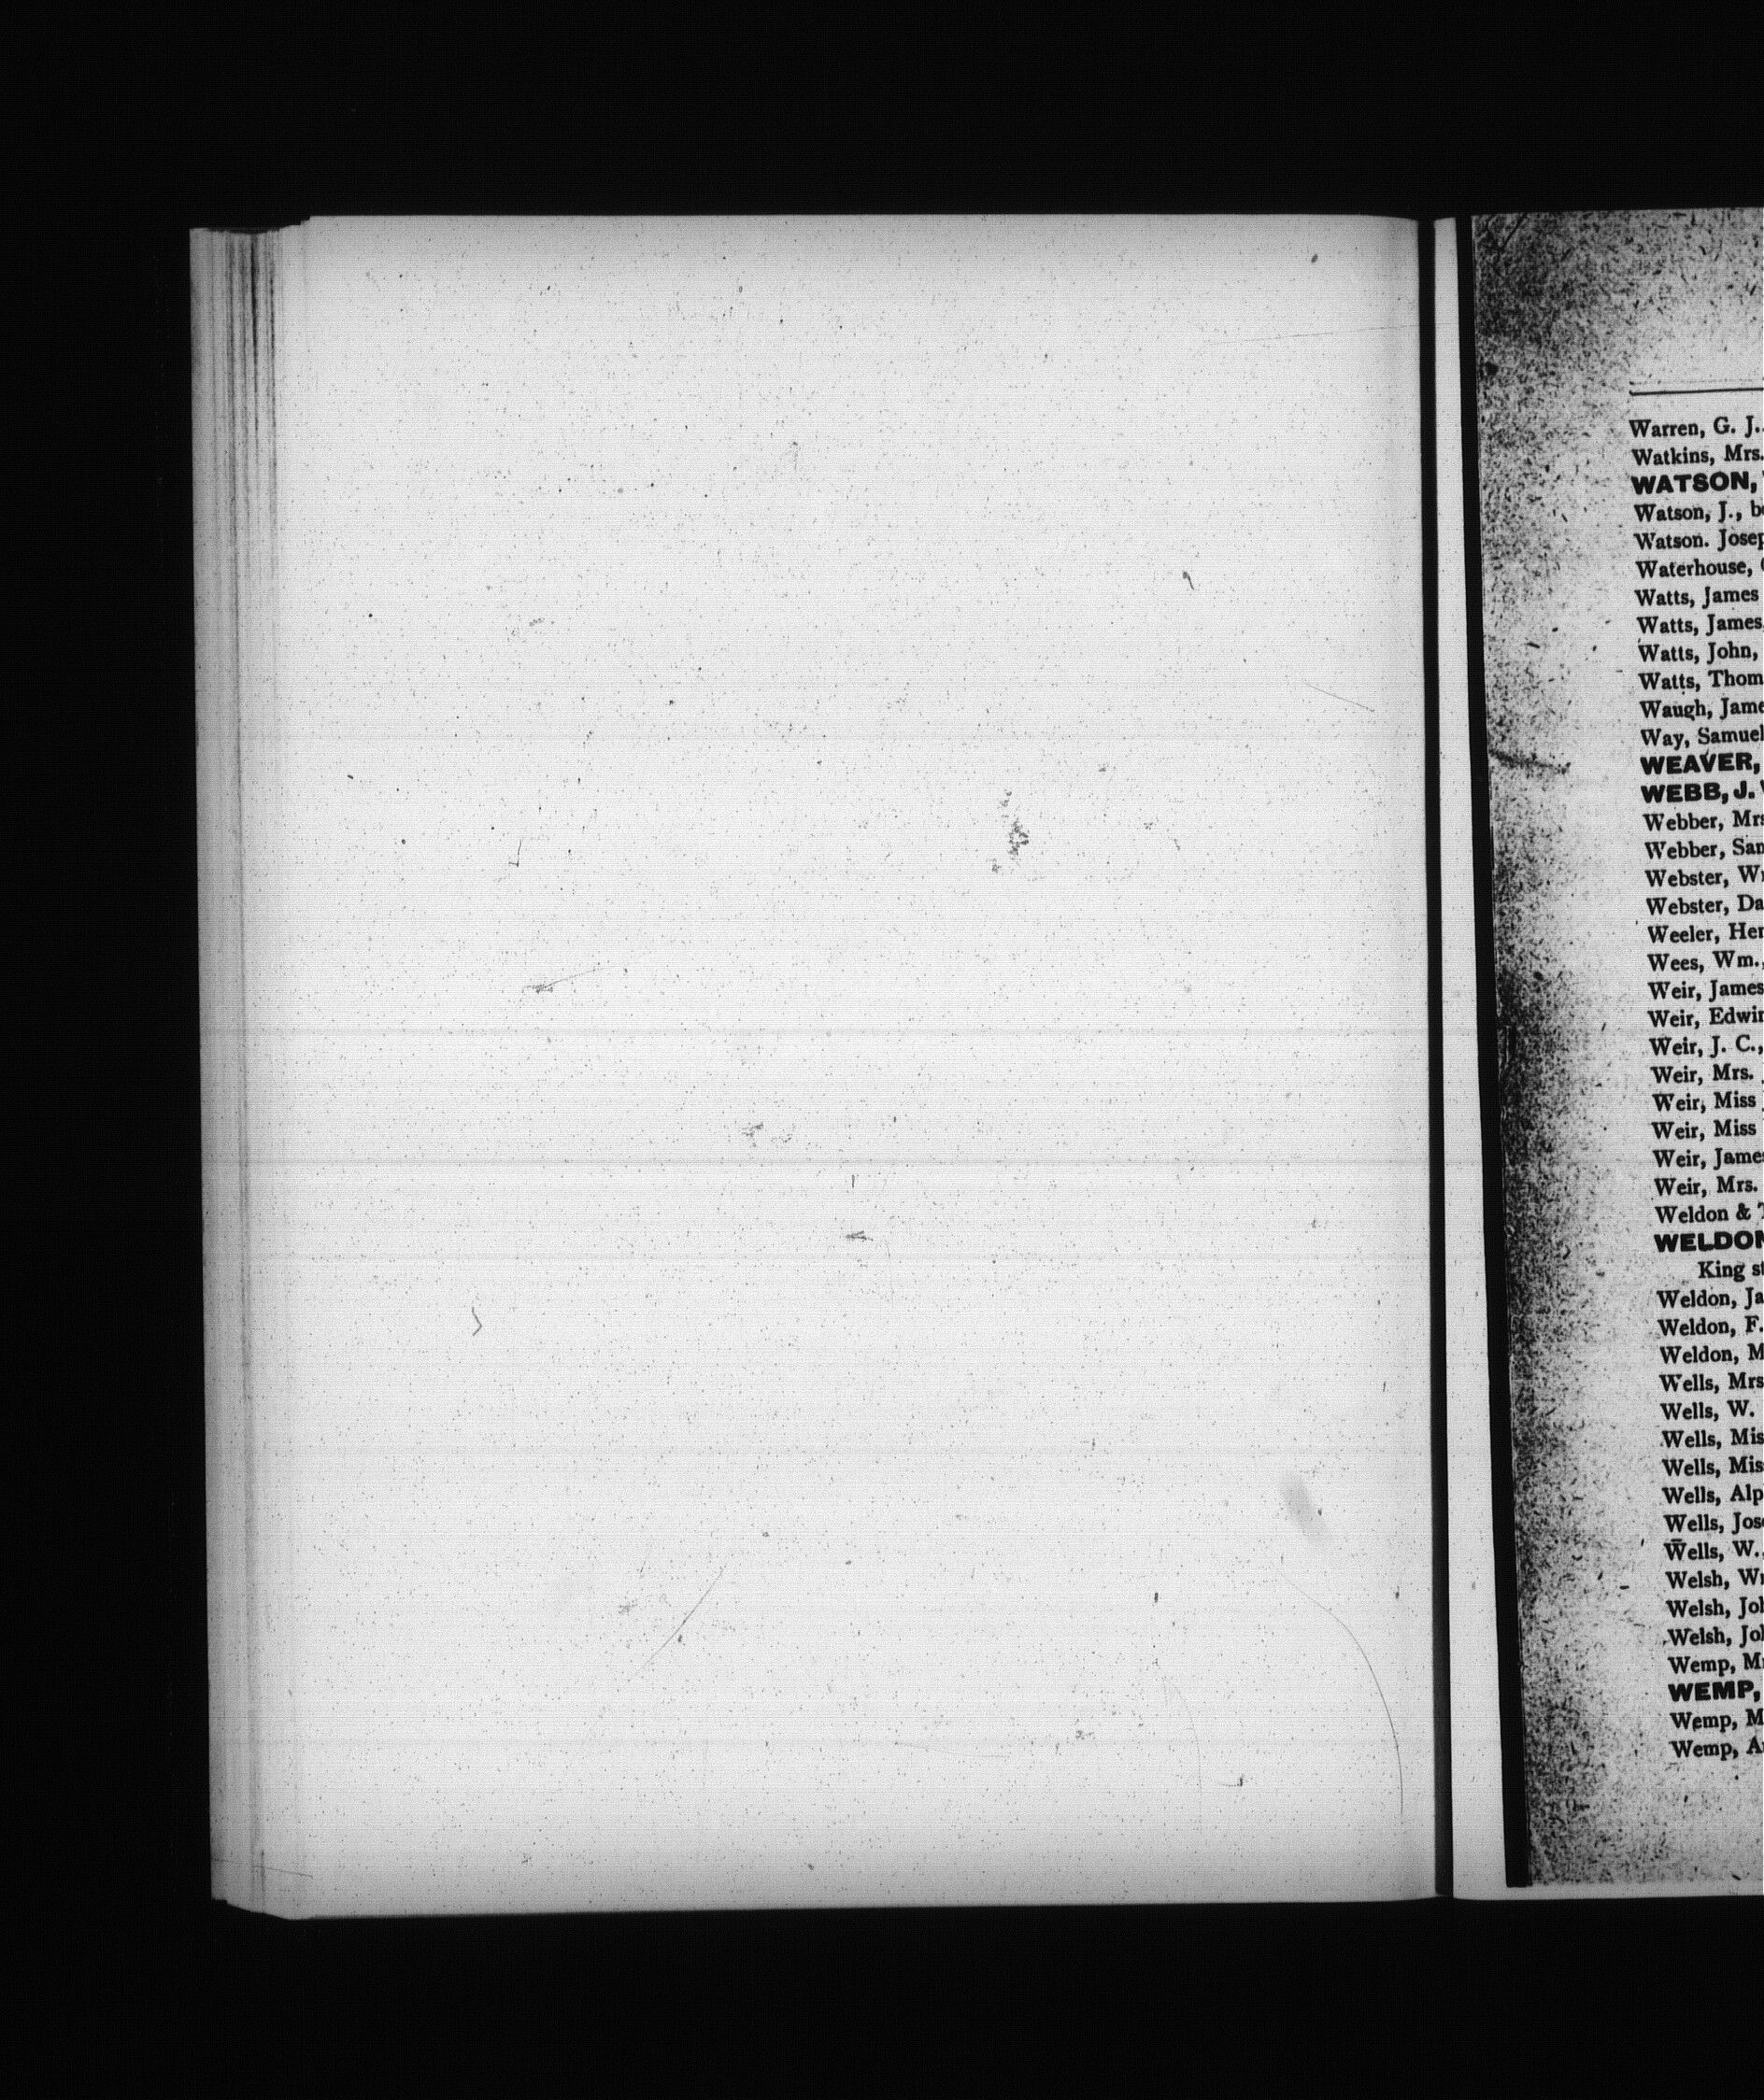 Warren, G. J.
Watkins, Mrs.
WATSON,
Watson, J.,
Watson. Josep
Waterhouse,
Watts, James
Watts, James
Watts, John,
Watts, Thom
Waugh, Jame
Way, Samuel
WEAVER,
WEBB, J.
Webber, Mrs
Webber, Sam
Webster, W
Webster, Da
Weeler, Her
Wees, Wm.,
Weir, James
Weir, Edwin
Weir, J. C.,
Weir, Mrs.
Weir, Miss
Weir, Miss
Weir, James
Weir, Mrs.
Weldon &
WELDON
King st
Weldon, Ja
Weldon, F.
Weldon, M
Wells, Mrs
Wells, W.
Wells, Mis
Wells, Mis
Wells, Alp
Wells, Jose
Wells, W.,
Welsh, W
Welsh, Joh
Welsh, Joh
Wemp, M
WEMP,
Wemp, M
Wemp, A